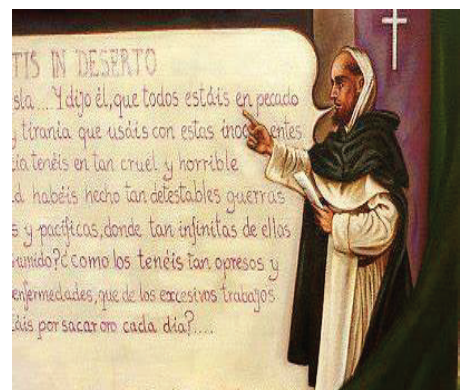 TIS IN DESERTO
sla.... Y dijo él, que todos estáis en pecado
y tiranía que usáis con estas inocentes
ia tenéis en tan cruel y horrible
d habéis hecho tan detestables guerras
s y pacíficas, donde tan infinitas de ellas
umido? ¿como los tenéis tan opresos y
enfermedades, que de los excesivos trabajos
áis por sacar oro cada día?....